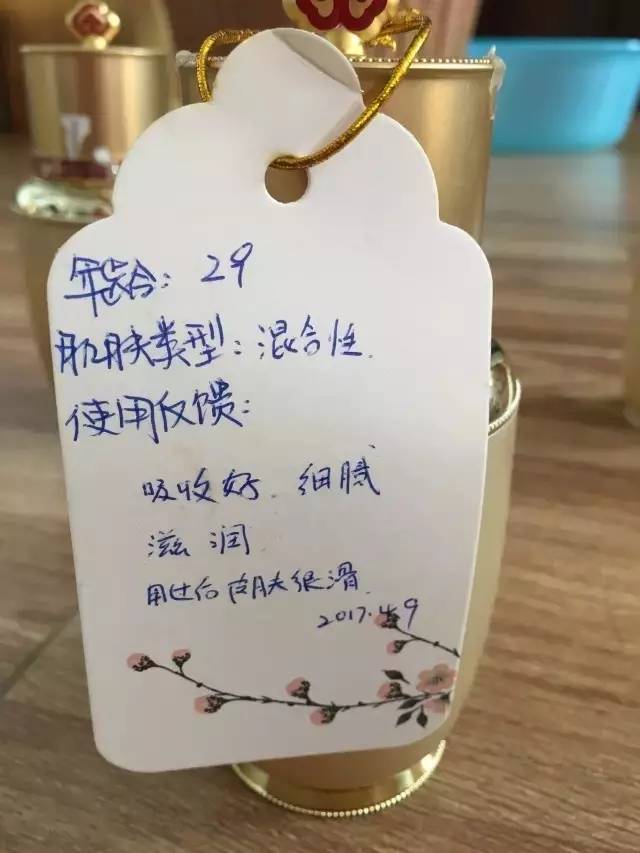 年龄: 29
肌肤类型: 混合性.
使用反馈:
吸收好. 细腻
滋润
用过后皮肤很滑.
2017.4.9